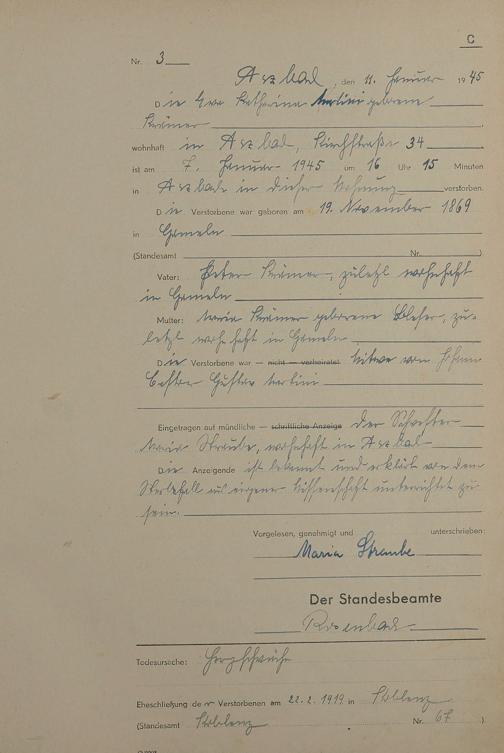 C
Nr. 3
Arzbach, den 11. Januar 1945
Die Eva Katharina Martini geborene
Krämer
wohnhaft in Arzbach, Kirchstraße 34
ist am 7. Januar 1945 um 16 Uhr 15 Minuten
in Arzbach in dieser Wohnung verstorben.
Die Verstorbene war geboren am 19. November 1869
in
(Standesamt Nr. )
Vater: Peter Krämer, zuletzt wohnhaft
in
Mutter: Maria Krämer geborene zu-
letzt wohnhaft in
Die Verstorbene war — nicht — verheiratet Witwe von Johann
Gustav Martini
Eingetragen auf mündliche — schriftliche Anzeige der Tochter
Maria Straube, wohnhaft in Arzbach
Die Anzeigende ist bekannt und erklärt von dem
Sterbefall aus eigener Wissenschaft unterrichtet zu
sein.
Vorgelesen, genehmigt und unterschrieben:
Maria Straube
Der Standesbeamte
Todesursache: Herzschwäche
Eheschließung der Verstorbenen am 22.2.1919 in Koblenz
(Standesamt Koblenz Nr. 67 )